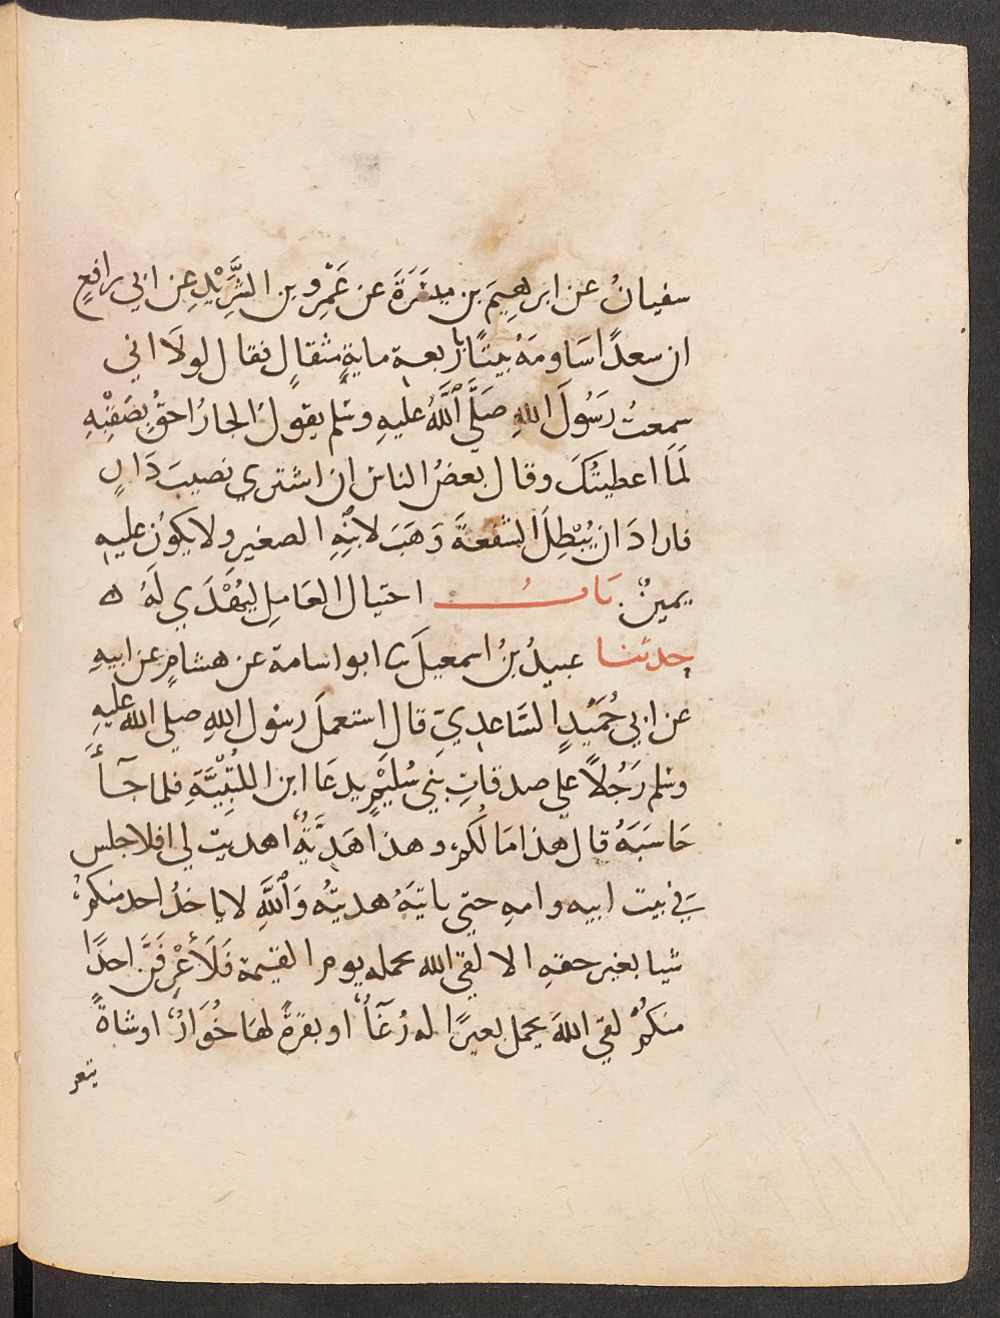 سفيانُ عن ابرهيمَ بن ميسَرَةَ عن عَمْرِو بن الشَّرِيْدِ عن ابي رافعٍ
ان سعدًا سَاومَهُ بيتًا باربعةِ مايةِ مثقالٍ فقال لولَا اني
سمعتُ رَسُولَ اللهِ صَلَّى ٱللَّهُ عليهِ وسلم يقولُ الجارُ احقُّ بصَقَبِهِ
لَمَا اعطيتُكَ وقال بعضُ الناس ان اشترى نصيبَ دَارٍ
فارادَ ان يُبْطِلَ الشفعةَ وَهَبَ لابنِهِ الصغيرِ ولا يكونُ عليهِ
يمينٌ. بَابُ احتيال العَامِلِ ليُهْدَي لَهُ ه
حدثنا عبيدُ بنُ اسمعيلَ نا ابو اسامة عن هشامٍ عن ابيهِ
عن ابي حُمَيْدٍ السَّاعدِيِّ قال استعملَ رسُول اللهِ صلى الله عليهِ
وسلم رَجُلًا على صدقاتِ بَني سُلَيْمٍ يدعَا ابن اللُّتْبِيَّةِ فلما جآءَ
حَاسَبَهُ قال هذا مَا لُكم وهذا هَدِيَّةٌ اهديت لي افلا جلس
في بيت ابيه وامهِ حتى ياتيَهُ هديتُه وَٱللَّهِ لا ياخذُ احد منكم
شيا بغير حقهِ الا لقي الله يحمله يوم القيمة فَلَأعْرِفَنَّ احدًا
منكمْ لقي اللهَ يحمل بعيرًا له رُغَآءٌ او بقرةً لهَا خُوَارٌ او شاةً
يتعر